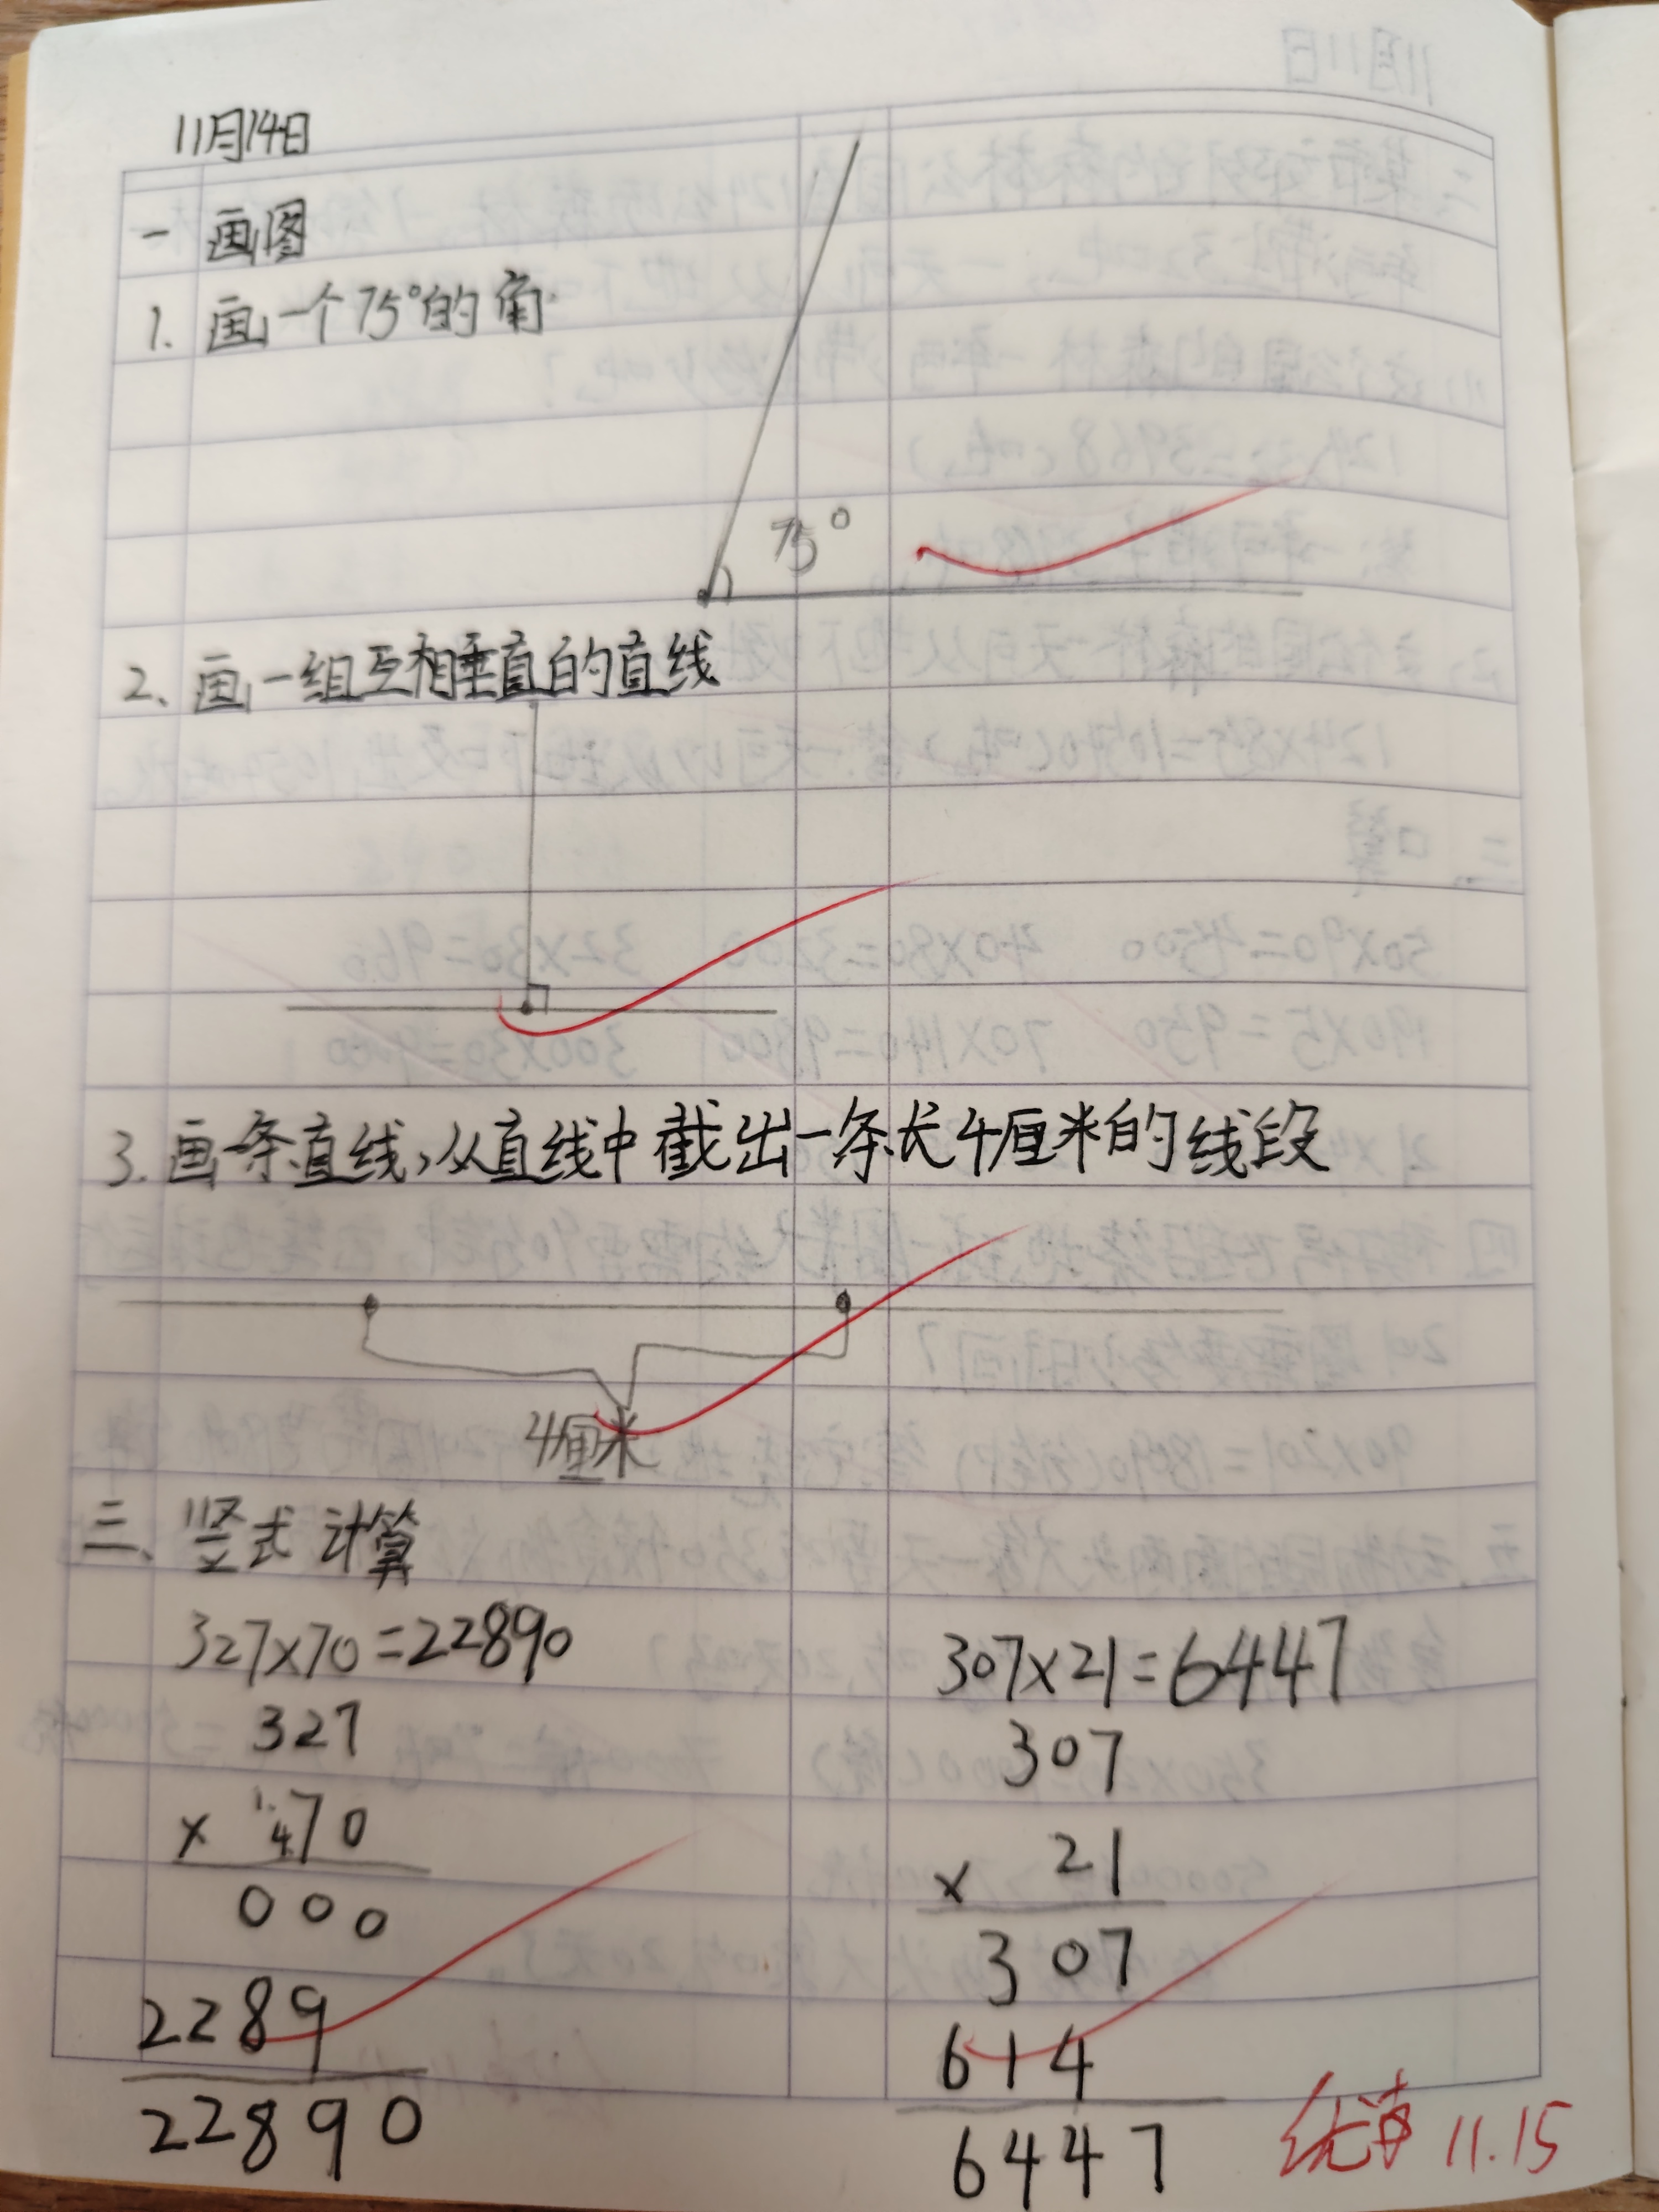 11月14日
一 画图
1. 画一个75°的角.
75°
2、画一组互相垂直的直线
3. 画一条直线,从直线中截出一条长4厘米的线段
4厘米
三、竖式计算
327×70=22890
327
× 70
000
2289
22890
307×21=6447
307
× 21
307
614
6447
11.15